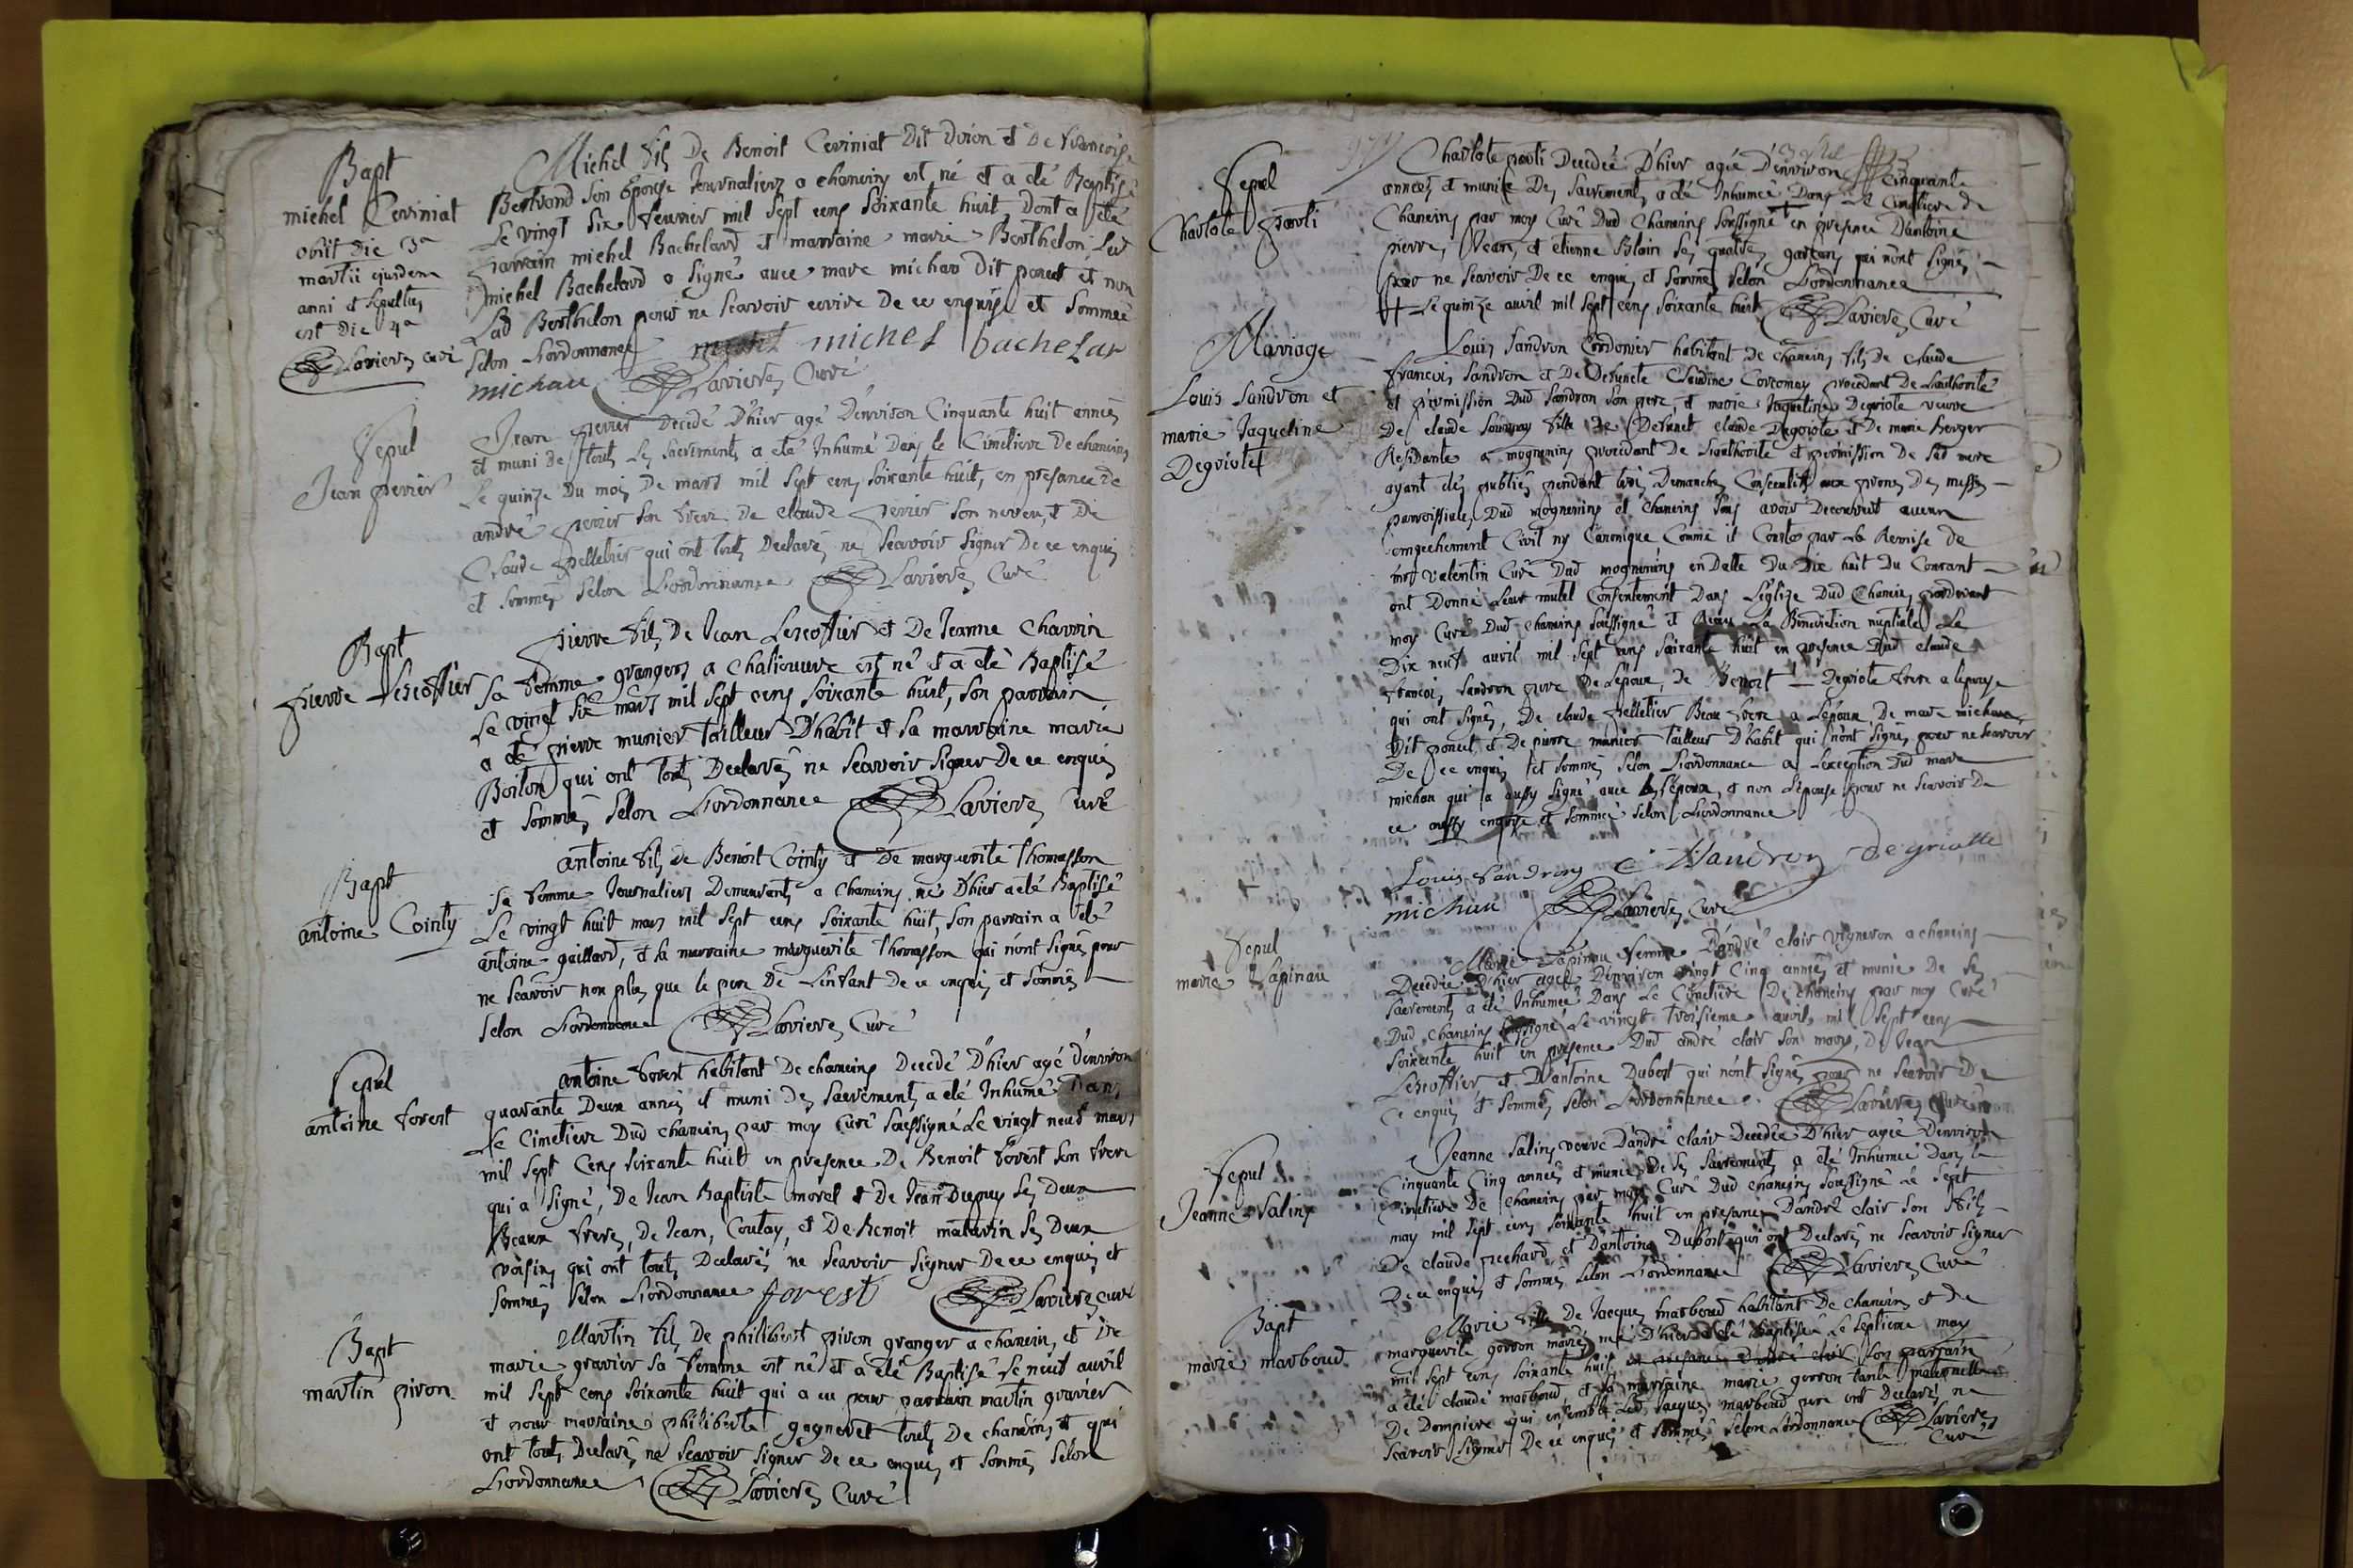 Bapt
michel Ceviniat
obiit die 3a
martii ejusdem
anni et sepultus
est die 4a
Lavieres curé
Michel fils De Benoit Ceviniat Dit Doion et De Francoise
Bertrand son Epouse Journaliers a chaneins est né et a été Baptisé
Le vingt six fevrier mil sept cens soixante huit, Dont a été
parrain michel Bachelard et marraine marie Berthelon Led
michel Bachelard a signé avec marc michau dit poncet et non
Lad Berthelon pour ne scavoir ecrire de ce enquise et sommée
selon Lordonnance michel bachelar
michau Lavieres Curé
Sepul
Jean perier
Jean perier Decedé D'hier agé D'environ Cinquante huit années
et muni de touts Les sacrements a été Inhumé Dans le Cimetiere De chaneins
Le quinze Du mois De mars mil sept cens soixante huit, en presance de
andré perier son frere De claude perier son neveu, et De
Claude pelletier qui ont touts Declarés ne scavoir signer De ce enquis
et sommés selon Lordonnance Lavieres Curé
Bapt
pierre Lescoffier
pierre fils De Jean Lescoffier et De Jeanne charvin
sa femme grangers a Chaliouvre est né et a été Baptisé
Le vingt six mars mil sept cens soixante huit, son parrain
a été pierre munier Tailleur D'habit et sa marraine marie
Boiton qui ont touts Declarés ne scavoir signer De ce enquis
et sommés selon Lordonnance Lavieres Curé
Bapt
antoine Cointy
antoine fils de Benoit Cointy et De marguerite Thomasson
sa femme Journaliers Demeurants a Chaneins né D'hier a été Baptisé
Le vingt huit mars mil sept cens soixante huit, son parrain a été
antoine gaillard, et sa marraine marguerite Thomasson qui n'ont signés pour
ne scavoir non plus que le pere De L'enfant de ce enquis et sommés
selon Lordonnance Lavieres Curé
Sepul
antoine forest
antoine forest habitant De chaneins Decedé D'hier agé d'environ
quarante Deux années et muni des sacrements a été Inhumé Dans
Le Cimetiere Dud chaneins par moy curé soussigné Le vingt neuf mars
mil sept Cens soixante huit en presence De Benoit forest son frere
qui a signé, De Jean Baptiste morel et De Jean Dupuy ses Deux
Beaux freres, De Jean, Coulay, et De Benoit matavin ses Deux
voisins qui ont touts Declarés ne scavoir signer De ce enquis et
sommés selon Lordonnance forest Lavieres curé
Bapt
martin piron
Martin fils De philibert piron granger a chaneins, et De
marie gravier sa femme est né et a été Baptisé Le neuf avril
mil sept cens soixante huit qui a eu pour parrain martin gravier
et pour marraine philiberte gagneret touts De chaneins, et qui
ont touts Declarés ne scavoir signer De ce enquis et sommés selon
Lordonnance Lavieres Curé
Sepul
Charlote parli
Charlote parli Decedée D'hier agée D'environ Cinquante
années et munie Des sacrements a été Inhumée Dans Le Cimetiere de
Chaneins par moy Curé Dud Chaneins soussigné en presence D'antoine
pierre, Jean, et etienne Blain ses quatres garcons qui n'ont signés
pour ne scavoir De ce enquis et sommés selon Lordonnance
Le quinze avril mil sept cens soixante huit Lavieres Curé
Mariage
Louis Sandron et
marie Jaqueline
Degriote
Louis Sandron Cordonier habitant De chaneins fils De claude
francois Sandron et De Defuncte Claudine procedant De L'authorité
et permission Dud Sandron son pere, et marie Jaqueline Degriote veuve
De claude fille De Defunct claude Degriote et De marie Berger
Residante a mogneneins procedant De L'authorité et permission De sad mere
ayant etés publiés pendant trois Dimanches Consecutifs aux prones Des messes
parroissiales Dud mogneneins et chaneins sans avoir Decouvert aucun
empechement Civil ny Canonique Comme il Conste par La Remise de
mr valentin Curé Dud mogneneins en Datte Du Dix huit Du Courant
ont Donné Leur mutel Consentement Dans L'eglise Dud Chaneins pardevant
moy Curé Dud chaneins soussigné et Recu La Benediction nuptiale Le
Dix neuf avril mil sept cens soixante huit en presence Dud claude
francois Sandron pere De L'epoux, de Benoit Degriote frere a l'epouse
qui ont signés, De claude pelletier Beau frere a L'epoux, De marc michau
Dit poncet, et De pierre munier Tailleur D'habit qui n'ont signés pour ne scavoir
De ce enquis et sommés selon Lordonnance a L'exception Dud marc
michau qui a aussy signé avec L'epoux, et non L'epouse pour ne scavoir De
ce aussy enquise et sommée selon Lordonnance
Louis Sandron C Sandron Degriotte
michau Lavieres Curé
Sepul
marie Lapinau
Marie Lapinau femme D'andré clair vigneron a chaneins
Decedée D'hier agée D'environ vingt Cinq années et munie De ses
sacrements a été Inhumée Dans Le Cimetiere De chaneins par moy Curé
Dud chaneins soussigné Le vingt troisieme avril mil sept cens
soixante huit en presence Dud andré clair son mary, De Jean
Lescoffier et D'antoine Dubost qui n'ont signés pour ne scavoir De
ce enquis et sommés selon Lordonnance Lavieres Curé
Sepul
Jeanne Salins
Jeanne Salins veuve D'andré clair Decedée D'hier agée D'environ
Cinquante Cinq années et munie De ses sacrements a été Inhumée Dans le
Cimetiere De chaneins par moy Curé Dud chaneins soussigné Le sept
may mil sept cens soixante huit en presance D'andré clair son fils
De claude prechard et D'antoine Dubost qui ont Declarés ne scavoir signer
De ce enquis et sommés selon Lordonnance Lavieres Curé
Bapt
marie marboud
Marie fille De Jacques marboud habitant De chaneins et de
marguerite gonon mariés née D'hier a été Baptisée Le septieme may
mil sept cens soixante huit son parrain
a été claude marboud, et sa marraine marie gonon tante maternelle
De Dompierre qui ensemble Led Jacques marboud pere ont Declarés ne
scavoir signer De ce enquis et sommés selon Lordonnance Lavieres
Curé